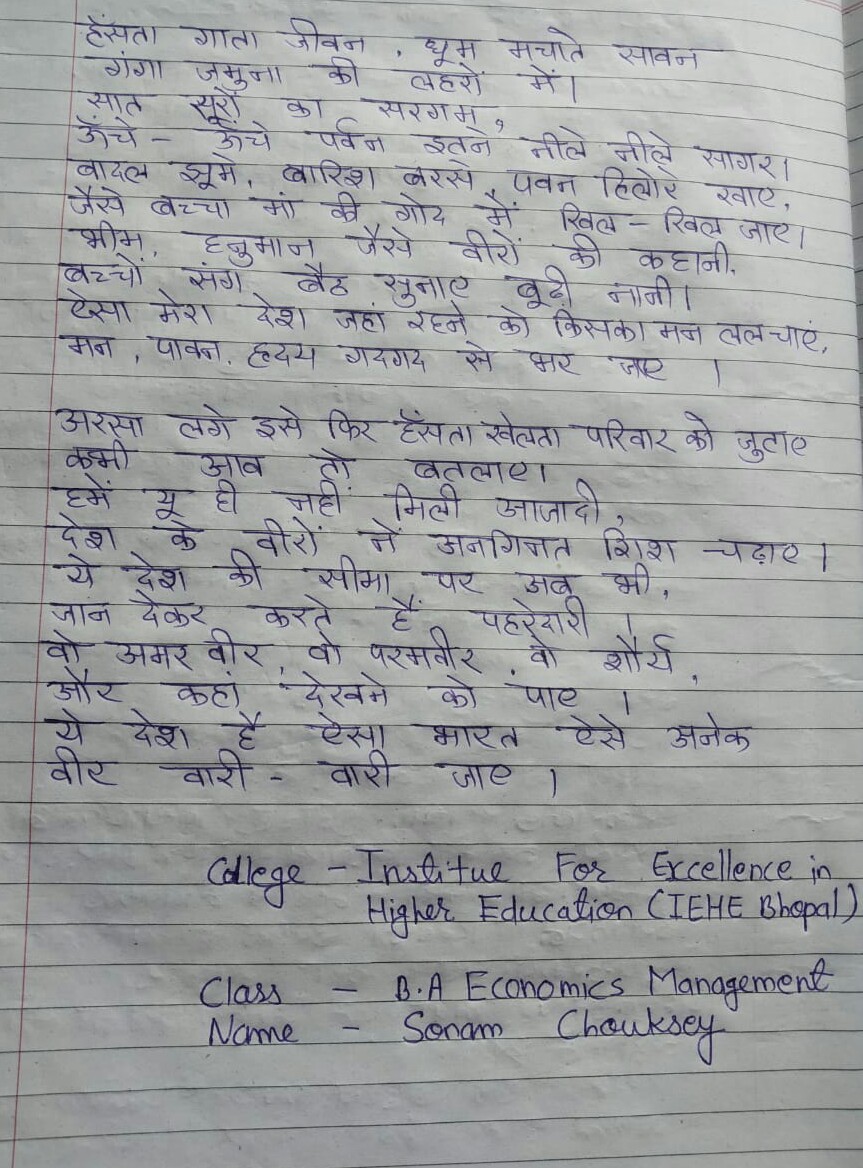 हँसता गाता जीवन , धूम मचाते सावन
गंगा जमुना की लहरों में।
सात सूरों का सरगम,
ऊँचे - ऊँचे पर्वन इतने नीले नीले सागर।
बादल झूमे, बारिश बरसे, पवन हिलोर खाए,
जैसे बच्चा मां की गोद में खिल - खिल जाए।
भीम, हनुमान जैसे वीरों की कहानी,
बच्चों संग बैठ सुनाए बूढ़ी नानी।
ऐसा मेरा देश जहां रहने को किसका मन ललचाएं,
मन , पावन, हृदय गदगद से भर जाए ।
अरसा लगे इसे फिर हँसता खेलता परिवार को जुटाए
कभी आव तो बतलाए।
हमें यू ही नहीं मिली आजादी,
देश के वीरों नें अनगिनत शिश चढ़ाए ।
ये देश की सीमा पर अब भी,
जान देकर करते हैं पहरेदारी ।
वो अमर वीर, वो परमवीर, वो शौर्य,
और कहां देखने को पाए ।
ये देश है ऐसा भारत ऐसे अनेक
वीर वारी - वारी जाए ।
College - Institue For Excellence in
Higher Education (IEHE Bhopal)
Class - B.A Economics Management
Name - Sonam Chouksey